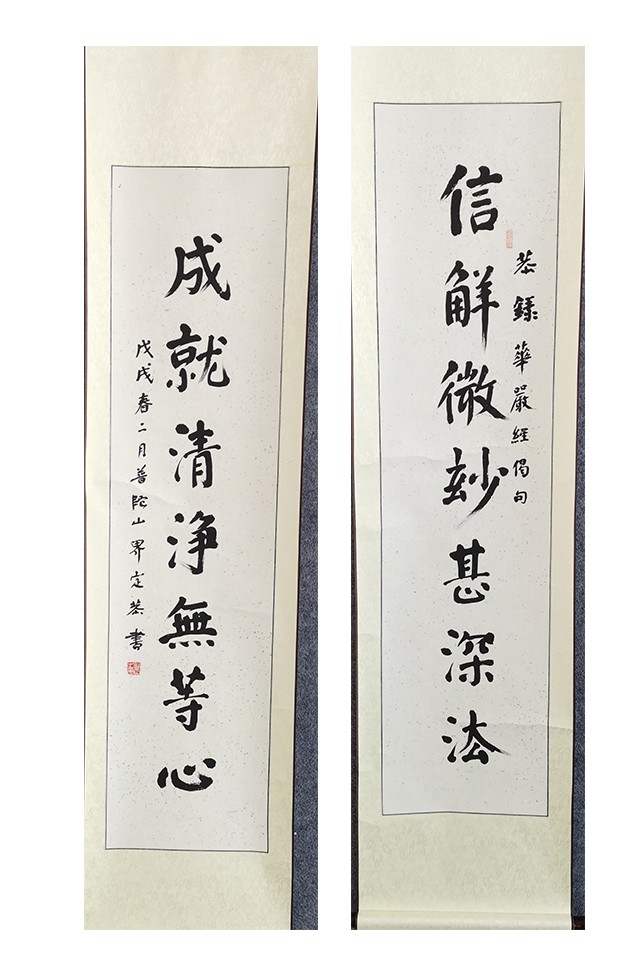 信解微玅甚深法
恭錄華嚴經偈句
成就清淨無等心
戊戌春二月普陀山界定恭書